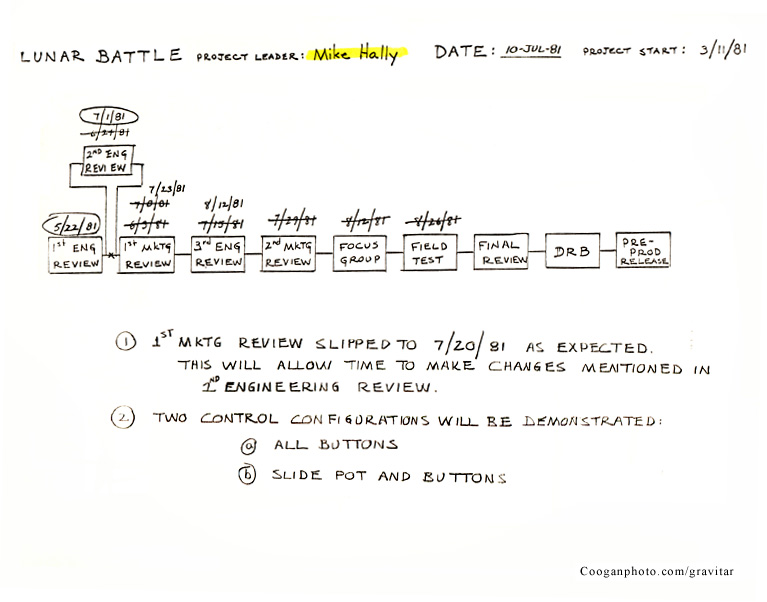 LUNAR BATTLE PROJECT LEADER: Mike Hally DATE: 10-JUL-81 PROJECT START: 3/11/81
7/1/81
6/24/81
2ND ENG
REVIEW
7/23/81
7/8/81 8/12/81
5/22/81 6/3/81 7/15/81 7/29/81 8/12/81 8/26/81
1st ENG
REVIEW
1st MKTG
REVIEW
3rd ENG
REVIEW
2nd MKTG
REVIEW
FOCUS
GROUP
FIELD
TEST
FINAL
REVIEW
DRB
PRE-
PROD
RELEASE
① 1ST MKTG REVIEW SLIPPED TO 7/20/81 AS EXPECTED.
THIS WILL ALLOW TIME TO MAKE CHANGES MENTIONED IN
2ND ENGINEERING REVIEW.
② TWO CONTROL CONFIGURATIONS WILL BE DEMONSTRATED:
ⓐ ALL BUTTONS
ⓑ SLIDE POT AND BUTTONS
Cooganphoto.com/gravitar